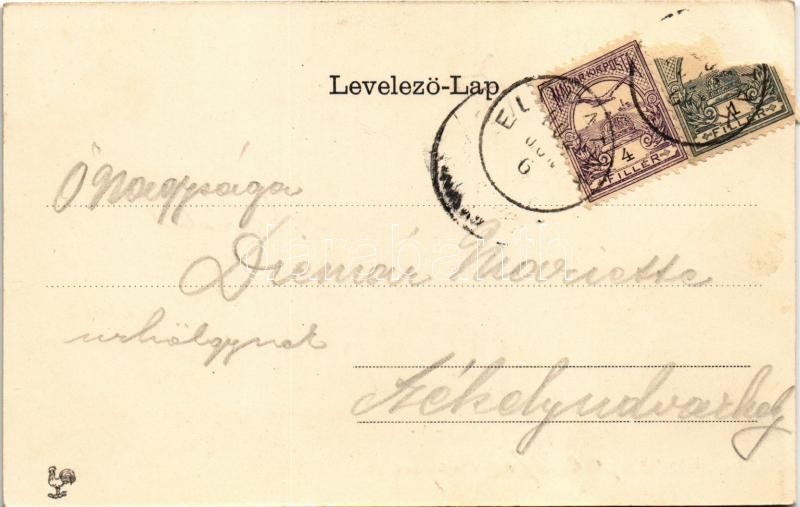 Levelező-Lap
MAGYAR KIR. POSTA
4
FILLÉR
1
FILLÉR
6
Ő Nagysága
Mariette
úrhölgynek
Székelyudvarhely
darabanth